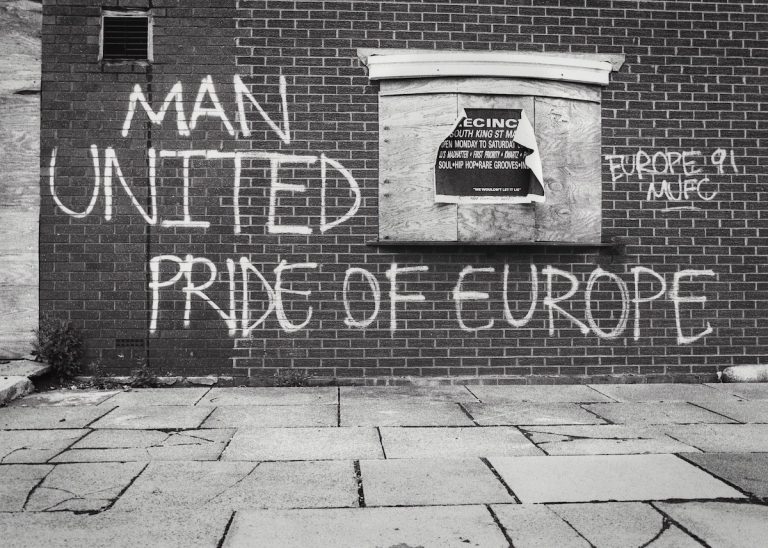 MAN
UNITED
PRIDE OF EUROPE
ECINC
SOUTH KING ST MA
OPEN MONDAY TO SATURDAY
DJ'S MADHATTER • FIRST PRIORITY •
SOUL•HIP HOP•RARE GROOVES•IN
"WE WOULDN'T LET U LIE"
EUROPE 91
MUFC